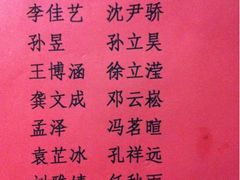 李佳艺 沈尹骄
孙昱 孙立昊
王博涵 徐立滢
龚文成 邓云崧
孟泽 冯茗暄
袁芷冰 孔祥远